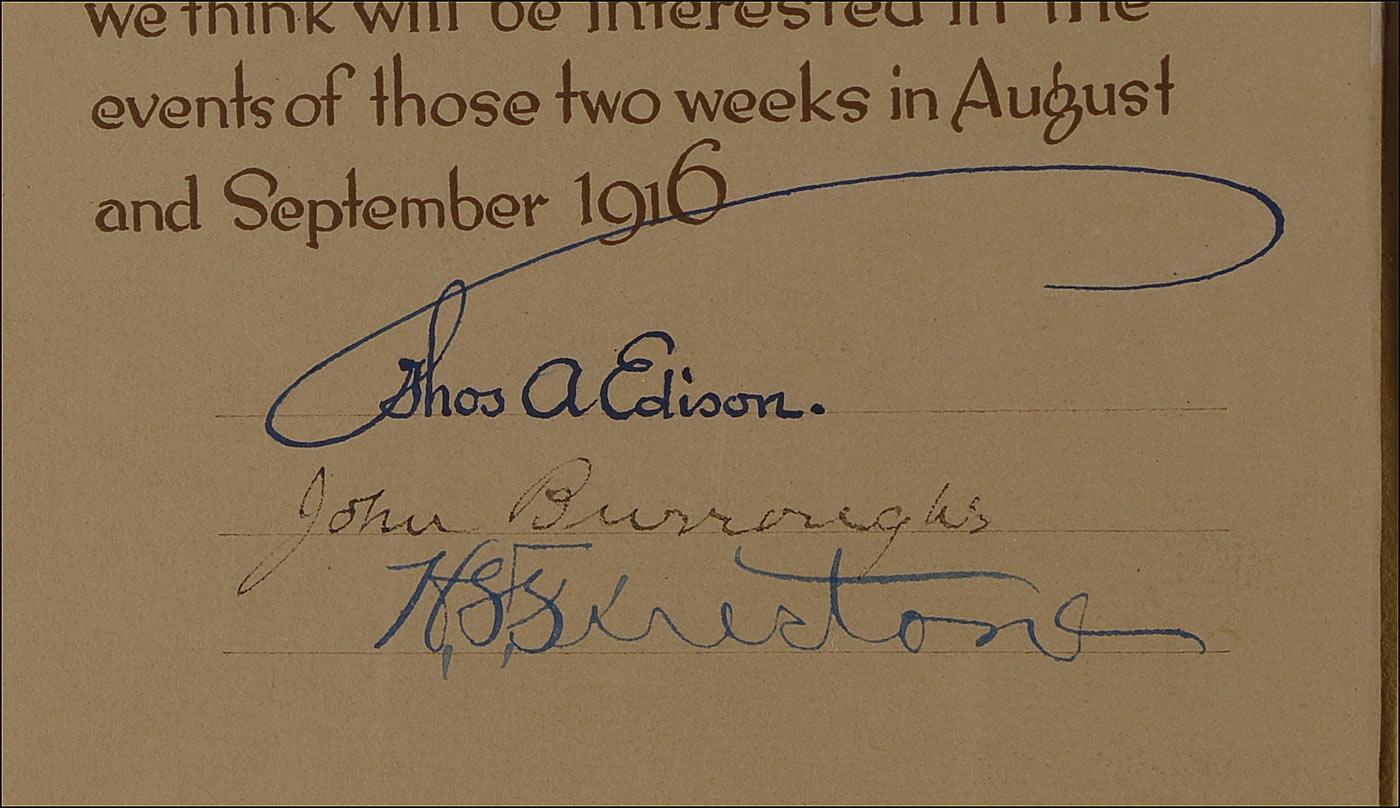 we think will be interested in the
events of those two weeks in August
and September 1916
Thos A Edison.
John Burroughs
H.S. Firestone